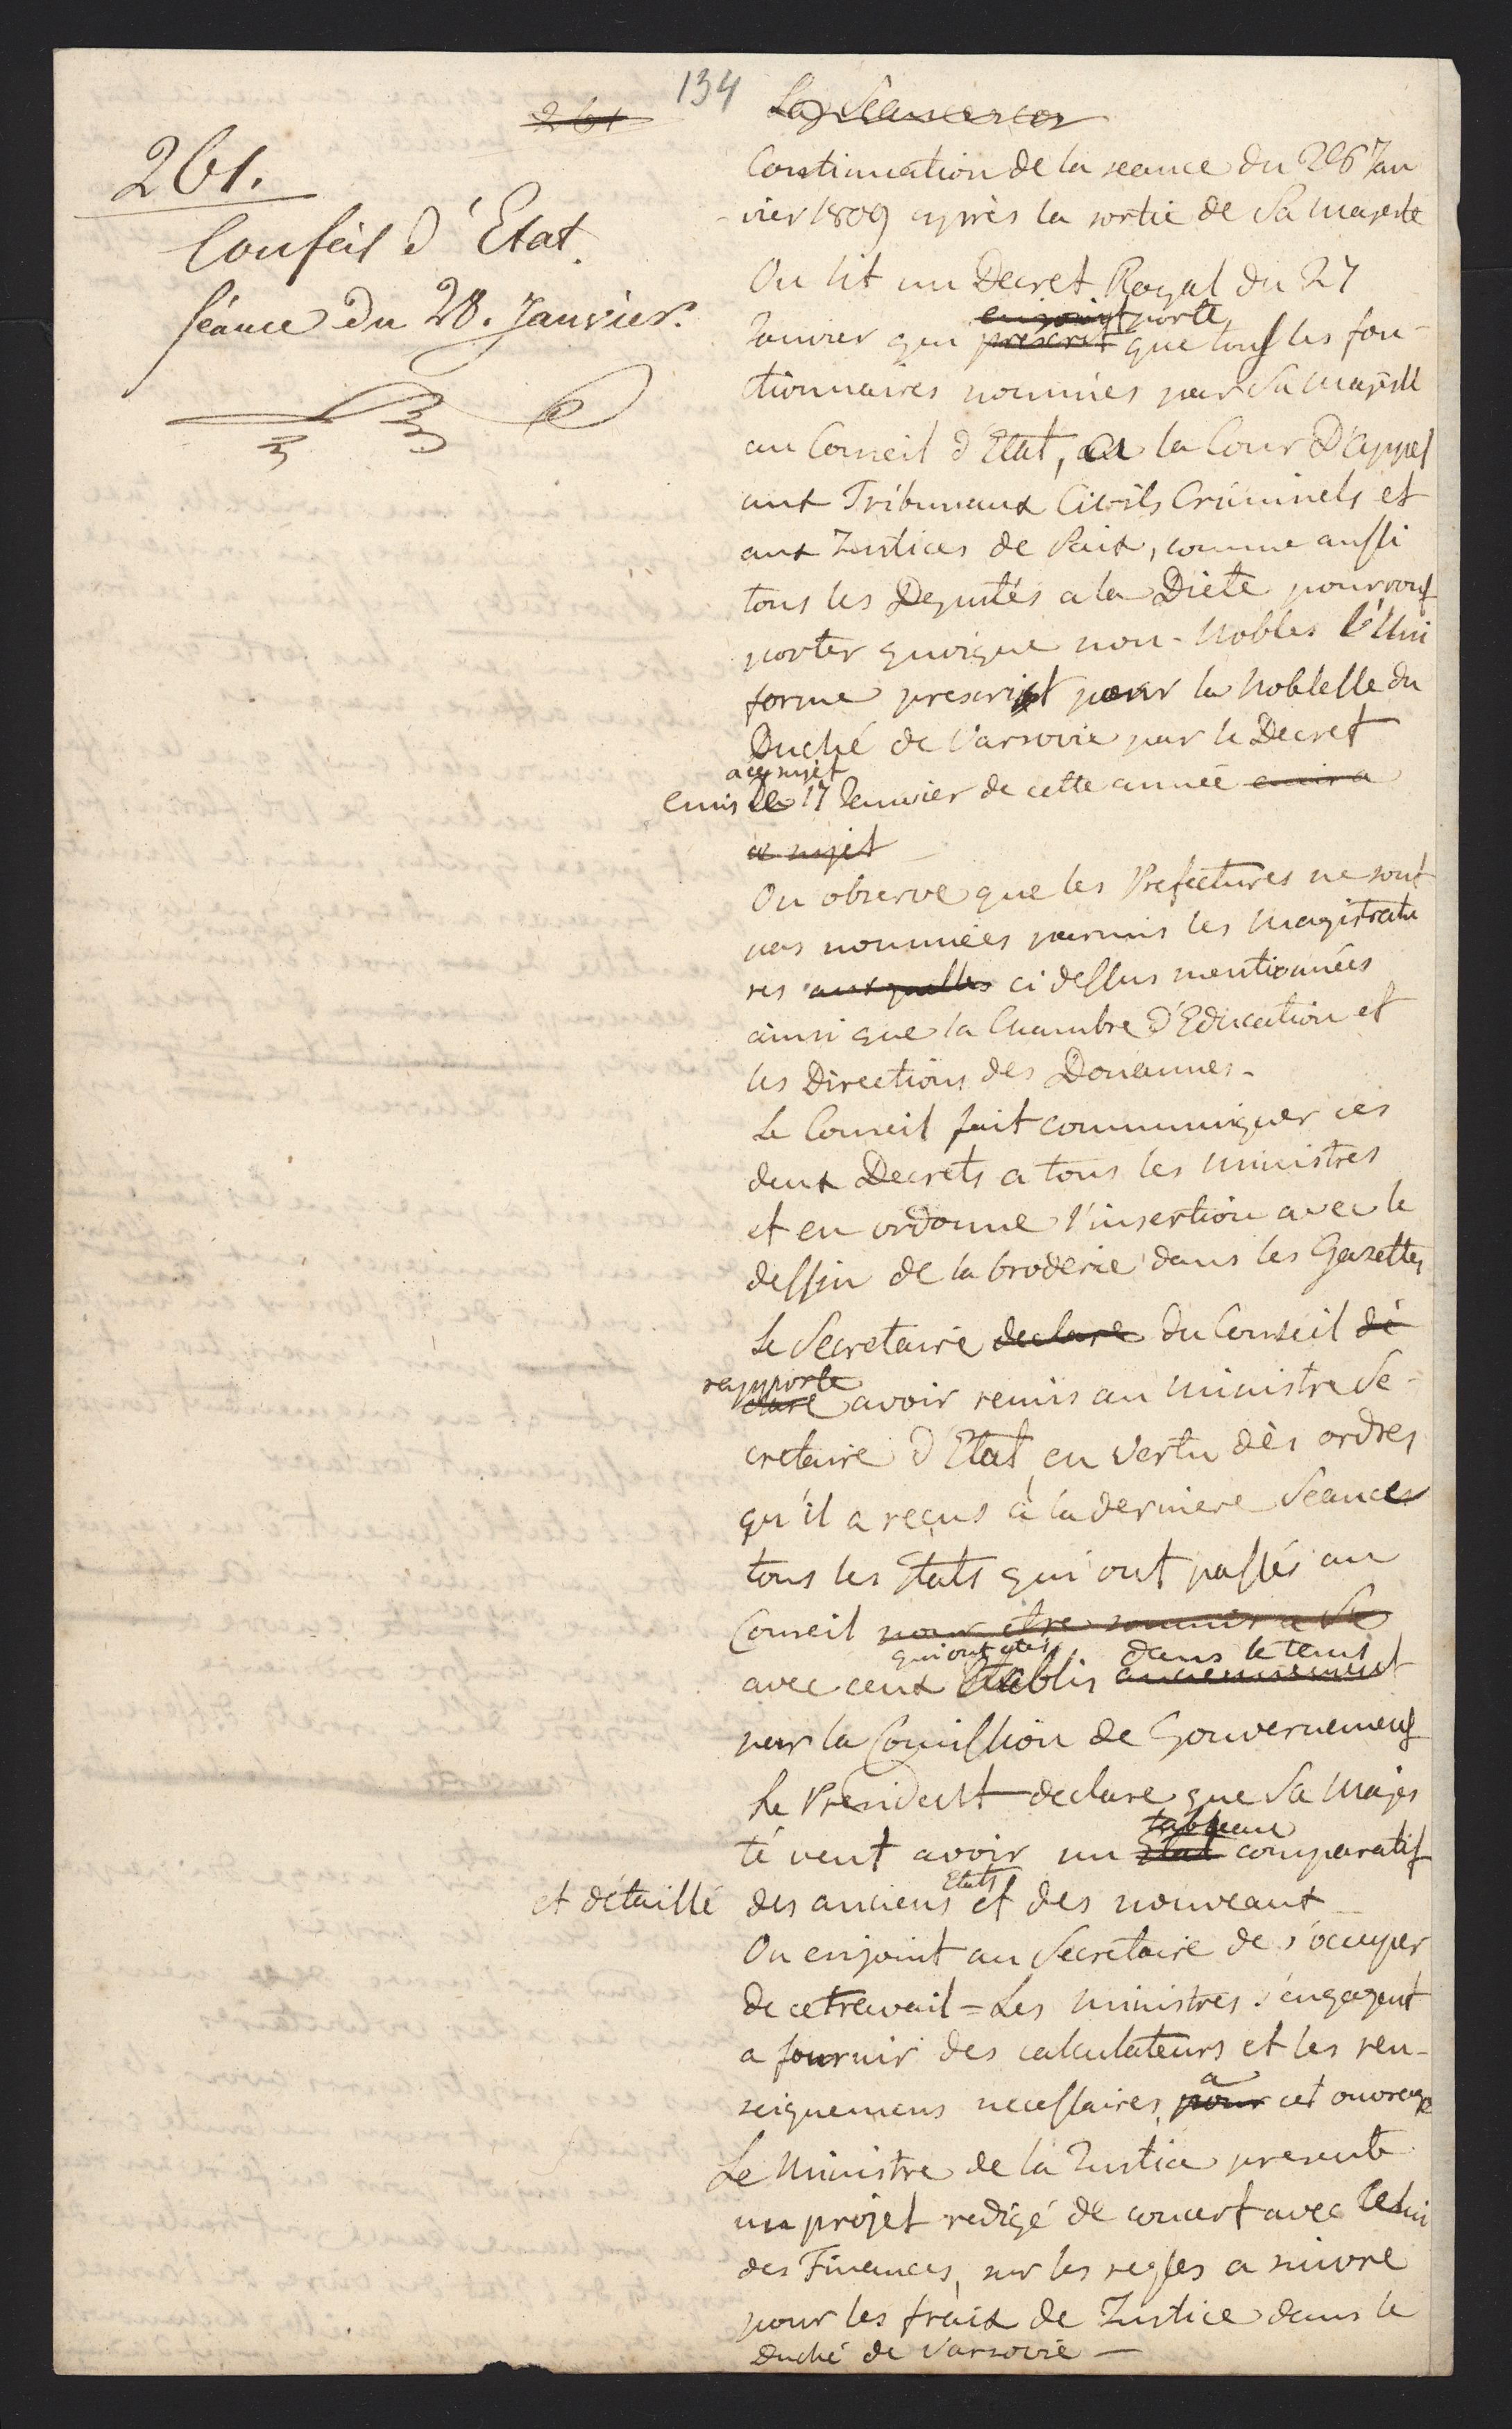 134
261
261.
Conseil d'Etat.
Séance du 28. Janvier.
La Séance
Continuation de la seance du 26 Jan
vier 1809 après la sortie de Sa Majesté
On lit un Decret Royal du 27
enjoint porte
Janvier qui prescrit que tous les fon-
ctionnaires nommés par Sa Majesté
au Conseil d'Etat, a la Cour D'appel
aux Tribunaux Civils Criminels et
aux Justices de Paix, comme aussi
tous les Deputés a la Diète pourront
porter quoique non-Nobles l'Uni
forme prescript pour la Noblesse du
Duché de Varsovie par le Decret
a ce sujet
emis le 17 Janvier de cette année emis a
ce sujet
On observe que les Prefectures ne sont
pas nommées parmis les Magistratu
res auxquelles ci dessus mentionnées
ainsi que la Chambre d'Education et
les Directions des Douannes-
Le Conseil fait communiquer ces
deux Decrets a tous les Ministres
et en ordonne l'insertion avec le
dessin de la broderie dans les Gazettes
Le Secretaire declare du Conseil dé
rapporte
clare avoir remis au Ministre Se-
cretaire d'Etat, en vertu dès ordres
qu'il a reçus à la derniere Seance
tous les Etats qui ont passés au
Conseil pour etre soumis a Sa
qui ont etés dans le tems
avec ceux etablis anciennement
par la Comission de Gouvernement
Le President declare que Sa Majes
tableau
té veut avoir un Etat comparatif
Etats
et détaillé des anciens et des nouveaux
On enjoint au Secretaire de s'occuper
de ce travail = Les Ministres s'engagent
a fournir des calculateurs et les ren-
a
seignemens necessaires pour cet ouvrage
Le Ministre de la Justice presente
un projet redigé de concert avec Celui
des Finances, sur les regles a suivre
pour les fraix de Justice dans le
Duché de Varsovie —